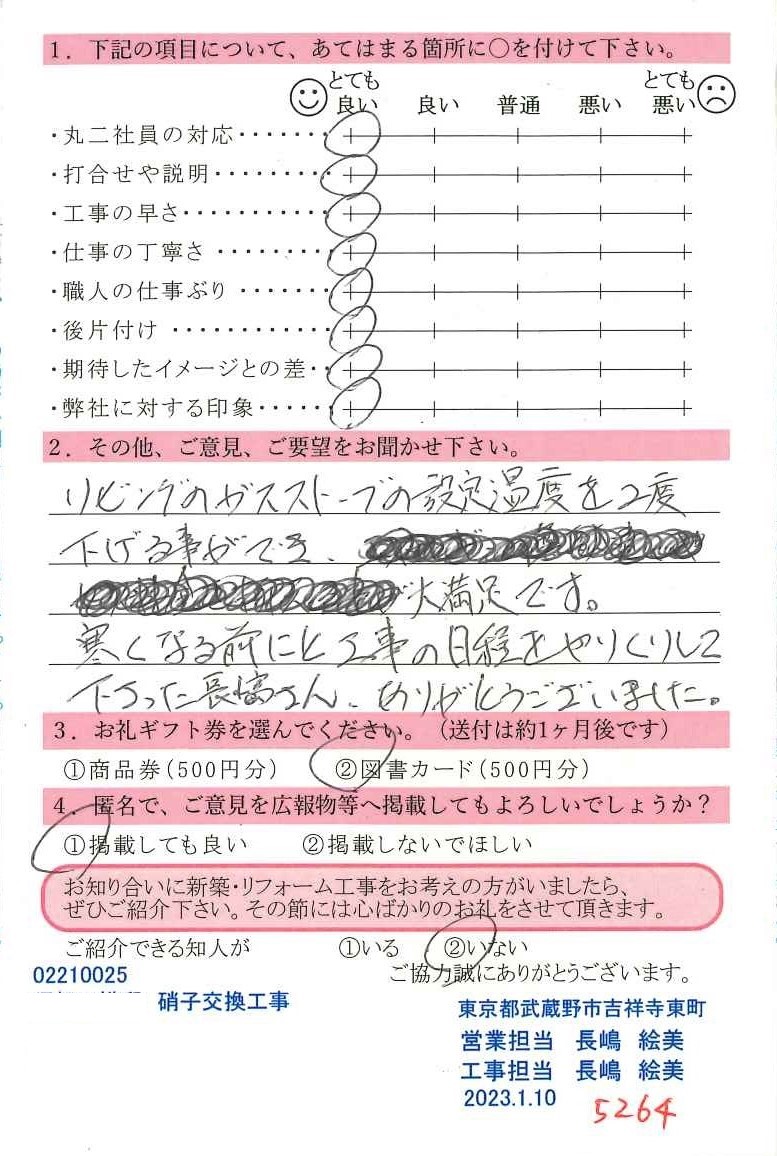 1. 下記の項目について、あてはまる箇所に○を付けて下さい。
とても良い 良い 普通 悪い とても悪い
・丸二社員の対応・・・・・・
・打合せや説明・・・・・・・・
・工事の早さ・・・・・・・・・・
・仕事の丁寧さ・・・・・・・・
・職人の仕事ぶり・・・・・・
・後片付け・・・・・・・・・・・
・期待したイメージとの差・・
・弊社に対する印象・・・・・
2. その他、ご意見、ご要望をお聞かせ下さい。
リビングのガスストーブの設定温度を2度
下げる事ができ、
が大満足です。
寒くなる前にと工事の日程をやりくりして
下さった長嶋さん、ありがとうございました。
3. お礼ギフト券を選んでください。(送付は約1ヶ月後です)
①商品券(500円分) ②図書カード(500円分)
4. 匿名で、ご意見を広報物等へ掲載してもよろしいでしょうか?
①掲載しても良い ②掲載しないでほしい
お知り合いに新築・リフォーム工事をお考えの方がいましたら、
ぜひご紹介下さい。その節には心ばかりのお礼をさせて頂きます。
ご紹介できる知人が ①いる ②いない
ご協力誠にありがとうございます。
02210025
硝子交換工事
東京都武蔵野市吉祥寺東町
営業担当 長嶋 絵美
工事担当 長嶋 絵美
2023.1.10
5264